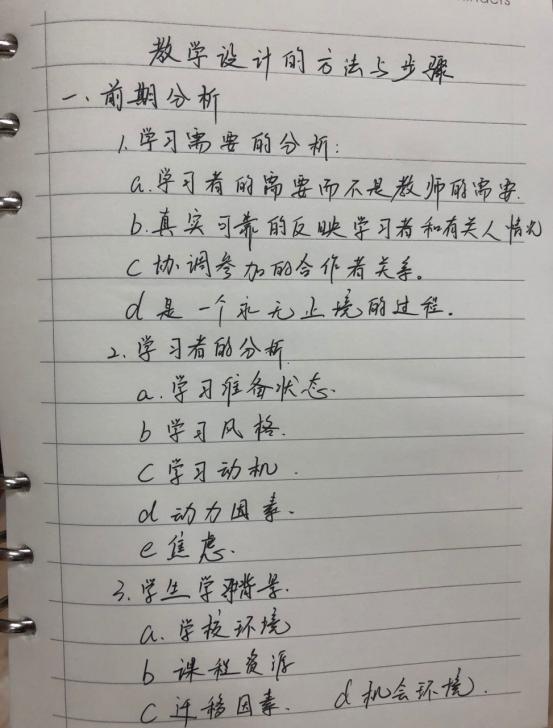 教学设计的方法与步骤
一、前期分析
1.学习需要的分析:
a.学习者的需要而不是教师的需要.
b.真实可靠的反映学习者和有关人情况
c 协调参加的合作者关系。
d 是一个永无止境的过程.
2.学习者的分析.
a.学习准备状态.
b 学习风格.
c 学习动机.
d 动力因素.
e 焦虑.
3.学生学习背景.
a.学校环境
b 课程资源
c 迁移因素. d 机会环境.